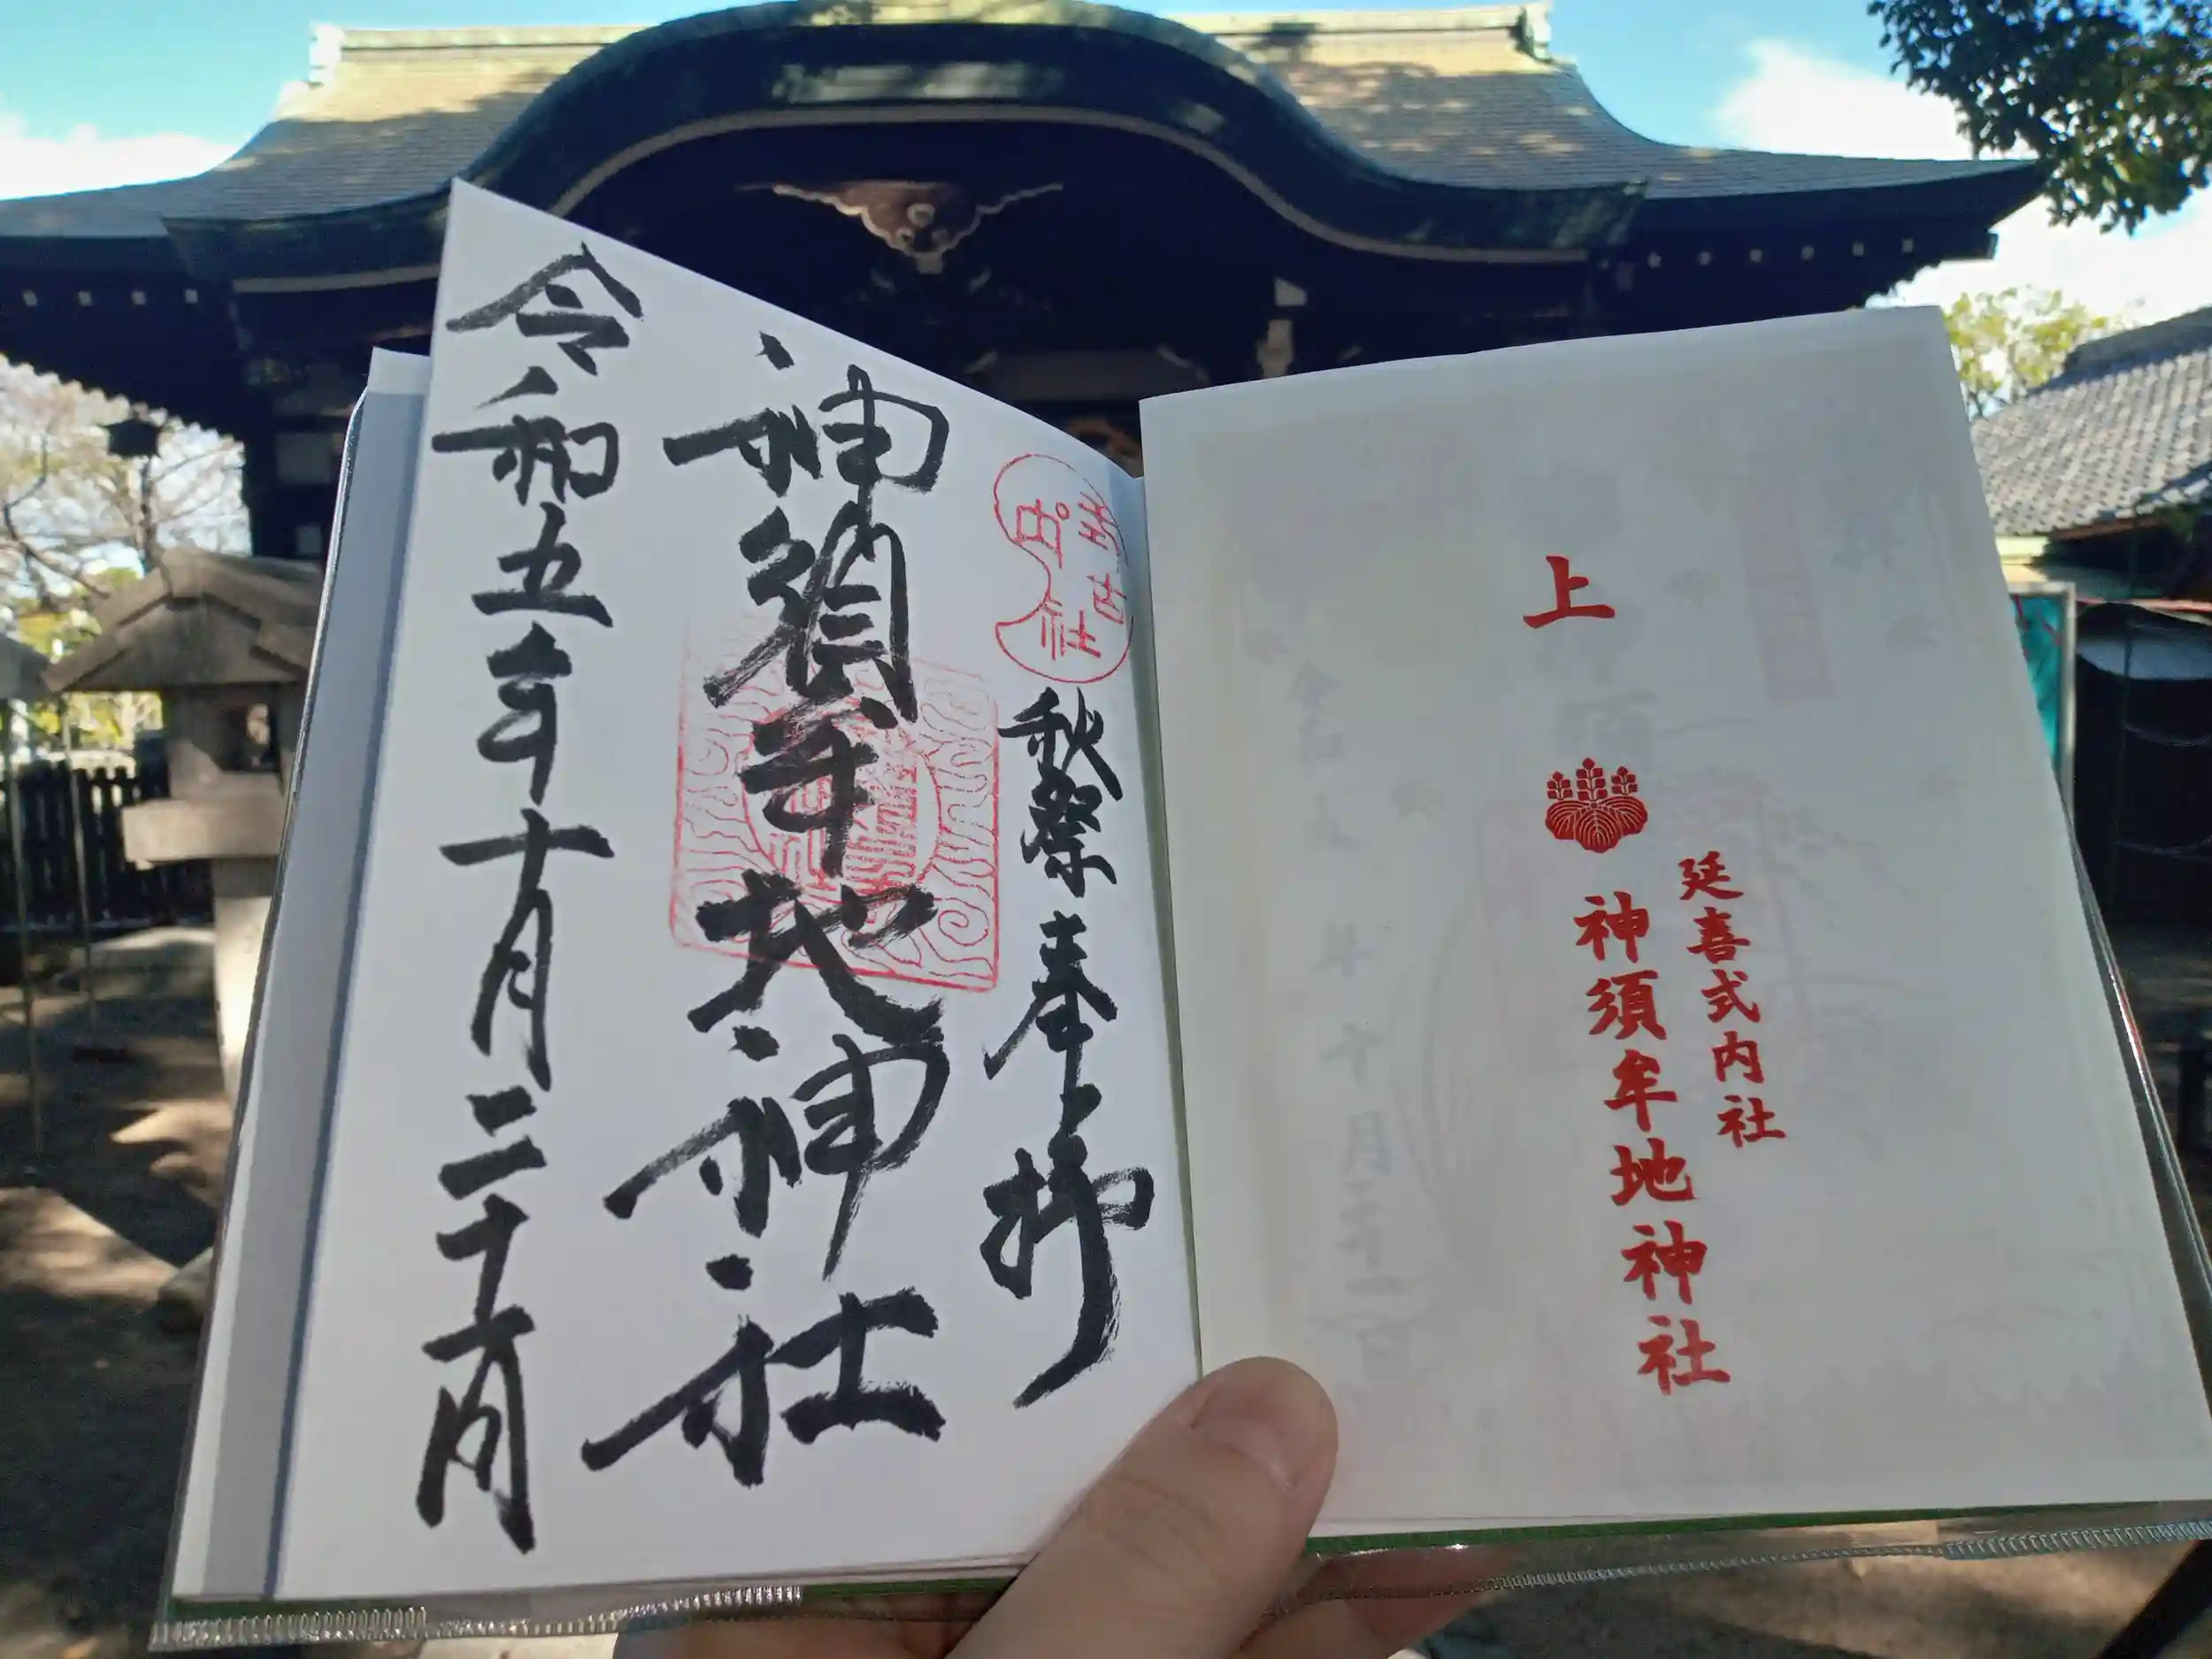 上
延喜式内社
神須牟地神社
秋祭奉拝
神須牟地神社
令和五年十月二十六日